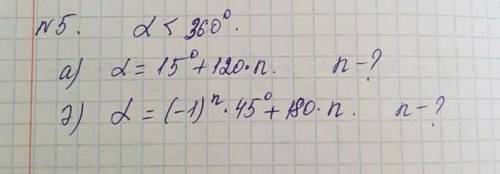 №5. α < 360°.
а) α = 15° + 120·n. n-?
д) α = (-1)ⁿ·45° + 180·n. n-?